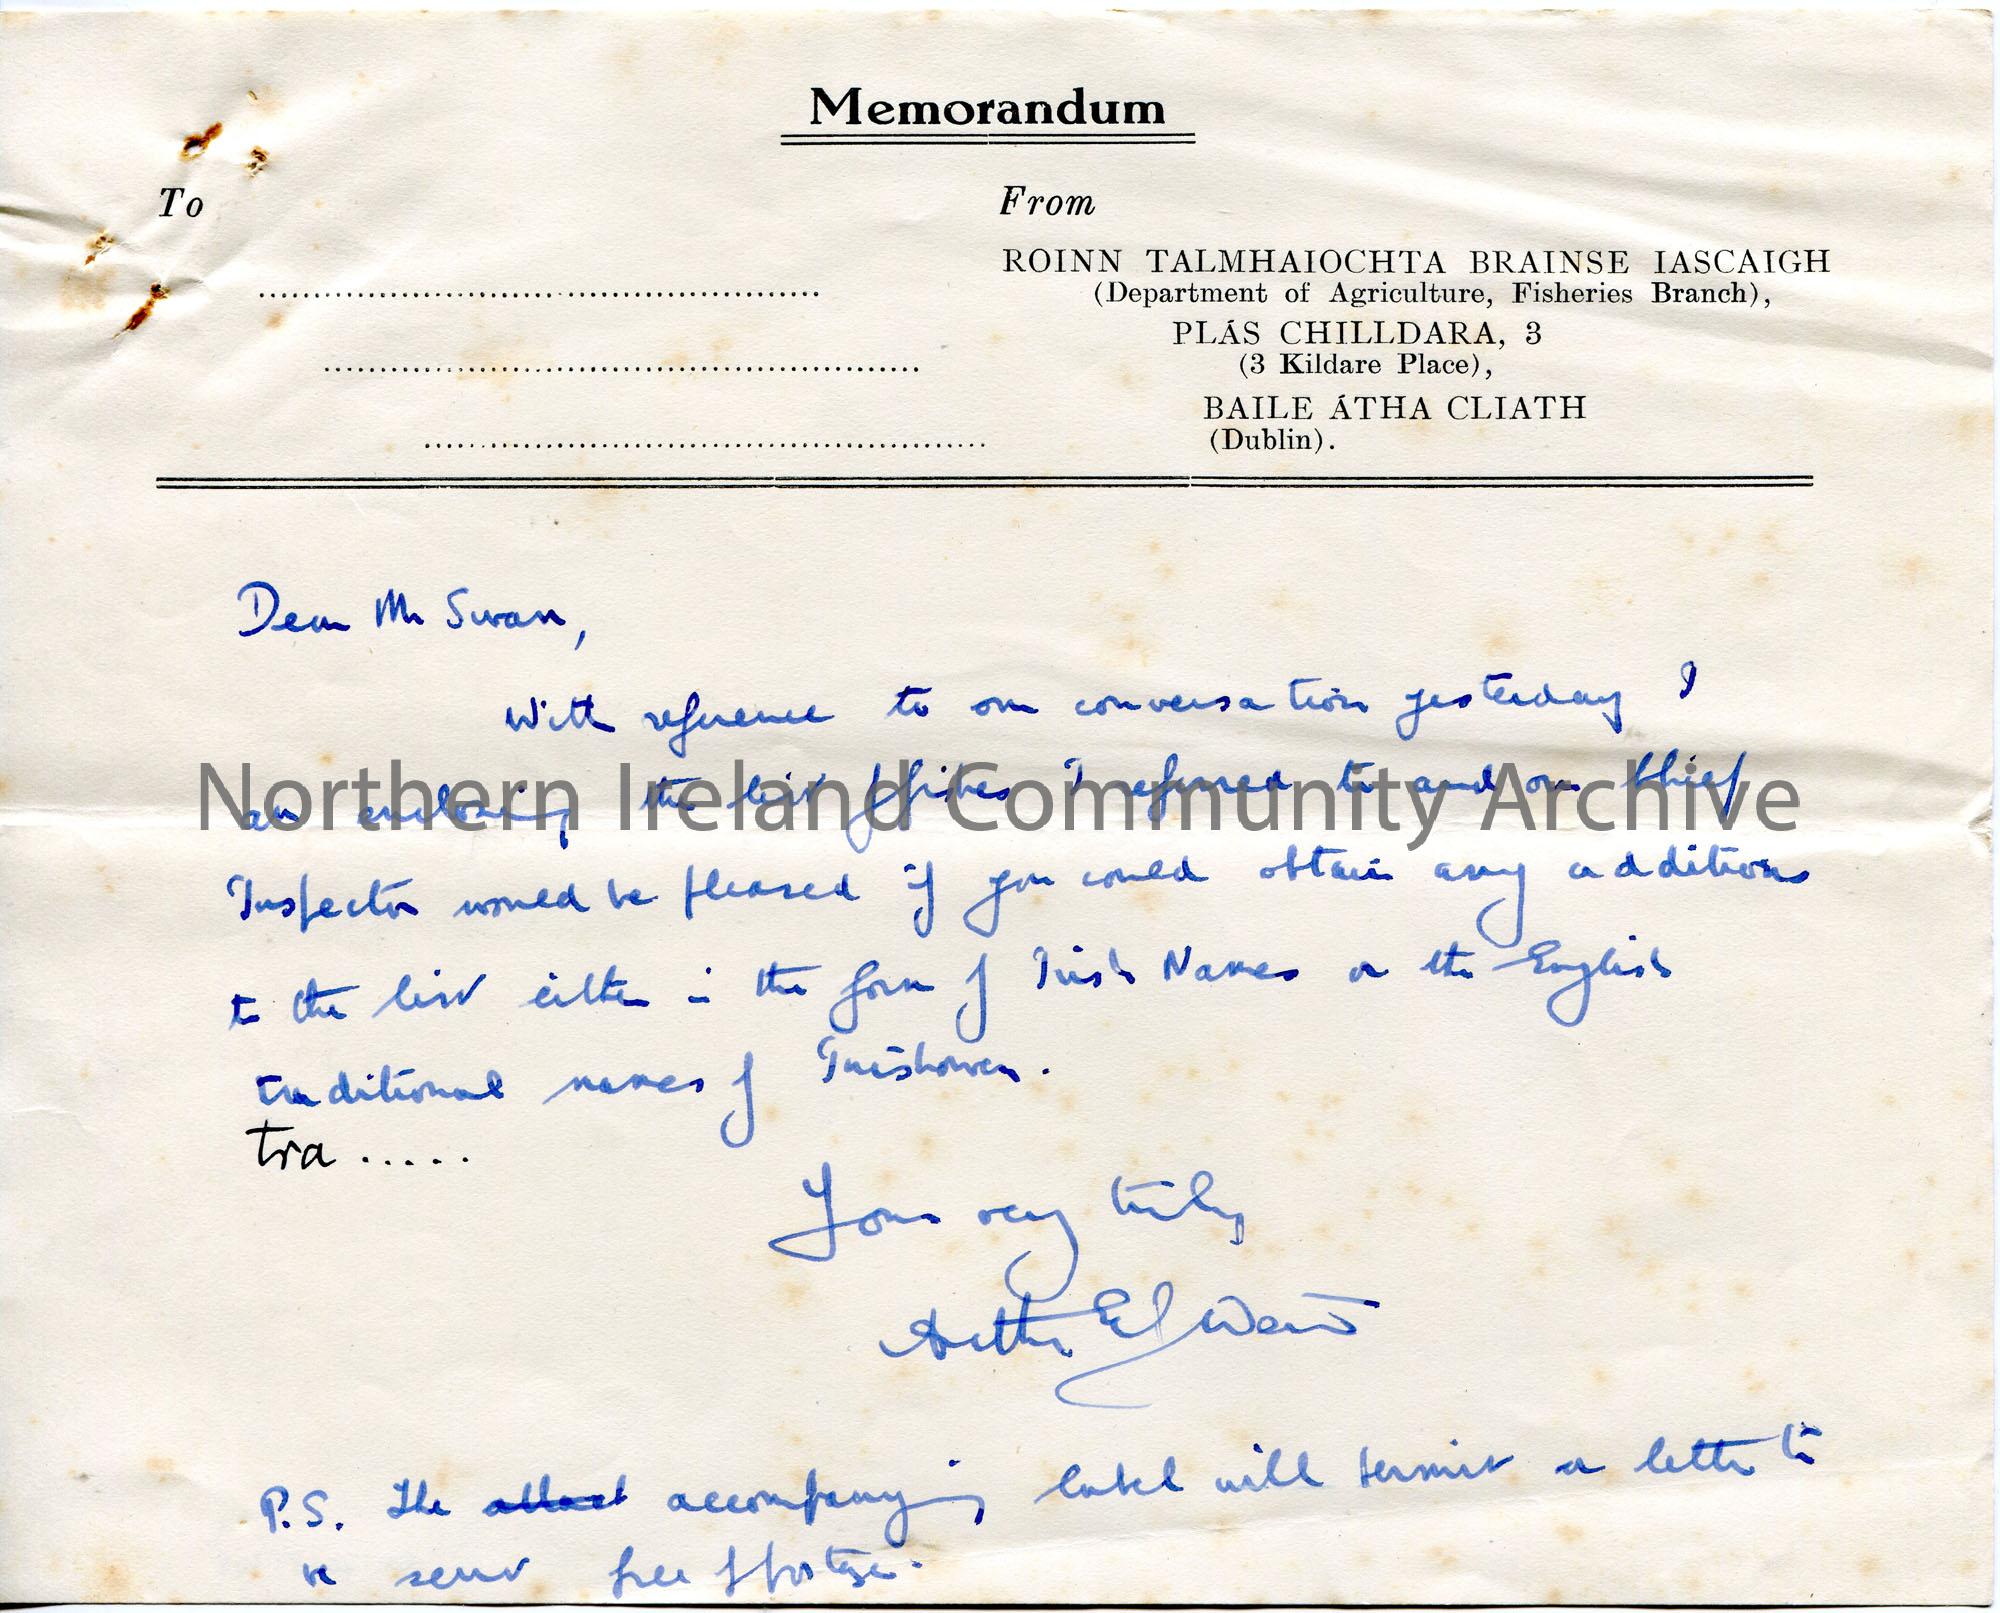 Memorandum
To
From
ROINN TALMHAIOCHTA BRAINSE IASCAIGH
(Department of Agriculture, Fisheries Branch),
PLÁS CHILLDARA, 3
(3 Kildare Place),
BAILE ÁTHA CLIATH
(Dublin).
Dear Mr Swan,
With reference to our conversation yesterday I
am enclosing the list of fishes I referred to and our Chief
Northern Ireland Community Archive
Inspector would be pleased if you could obtain any additions
to the list either in the form of Irish Names or the English
traditional names of Inishowen.
tra .....
Yours very truly
Arthur E J Went
P.S. The attact accompanying label will permit a letter to
be sent free of postage.